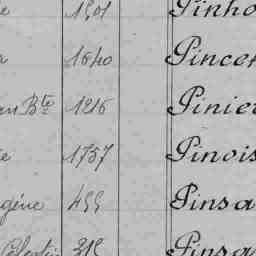 e 1501 Pinho
a 1640 Pincer
an Bte 1216 Pinie
e 1757 Pinois
gène 455 Pinsa
Célestin 315 Pinsa